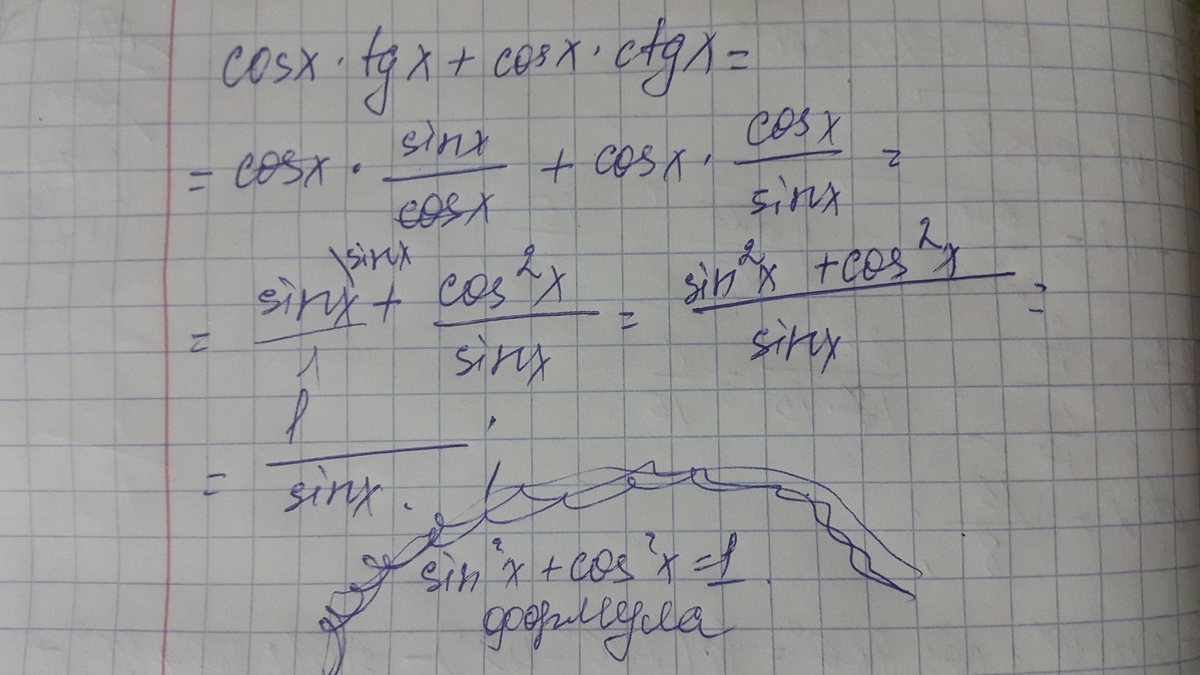 cosx · tgx + cosx · ctgx =
= cosx · sinx/cosx + cosx · cosx/sinx =
= sinx\sinx/1 + cos²x/sinx = sin²x + cos²x/sinx =
= 1/sinx.
sin²x + cos²x = 1
формула